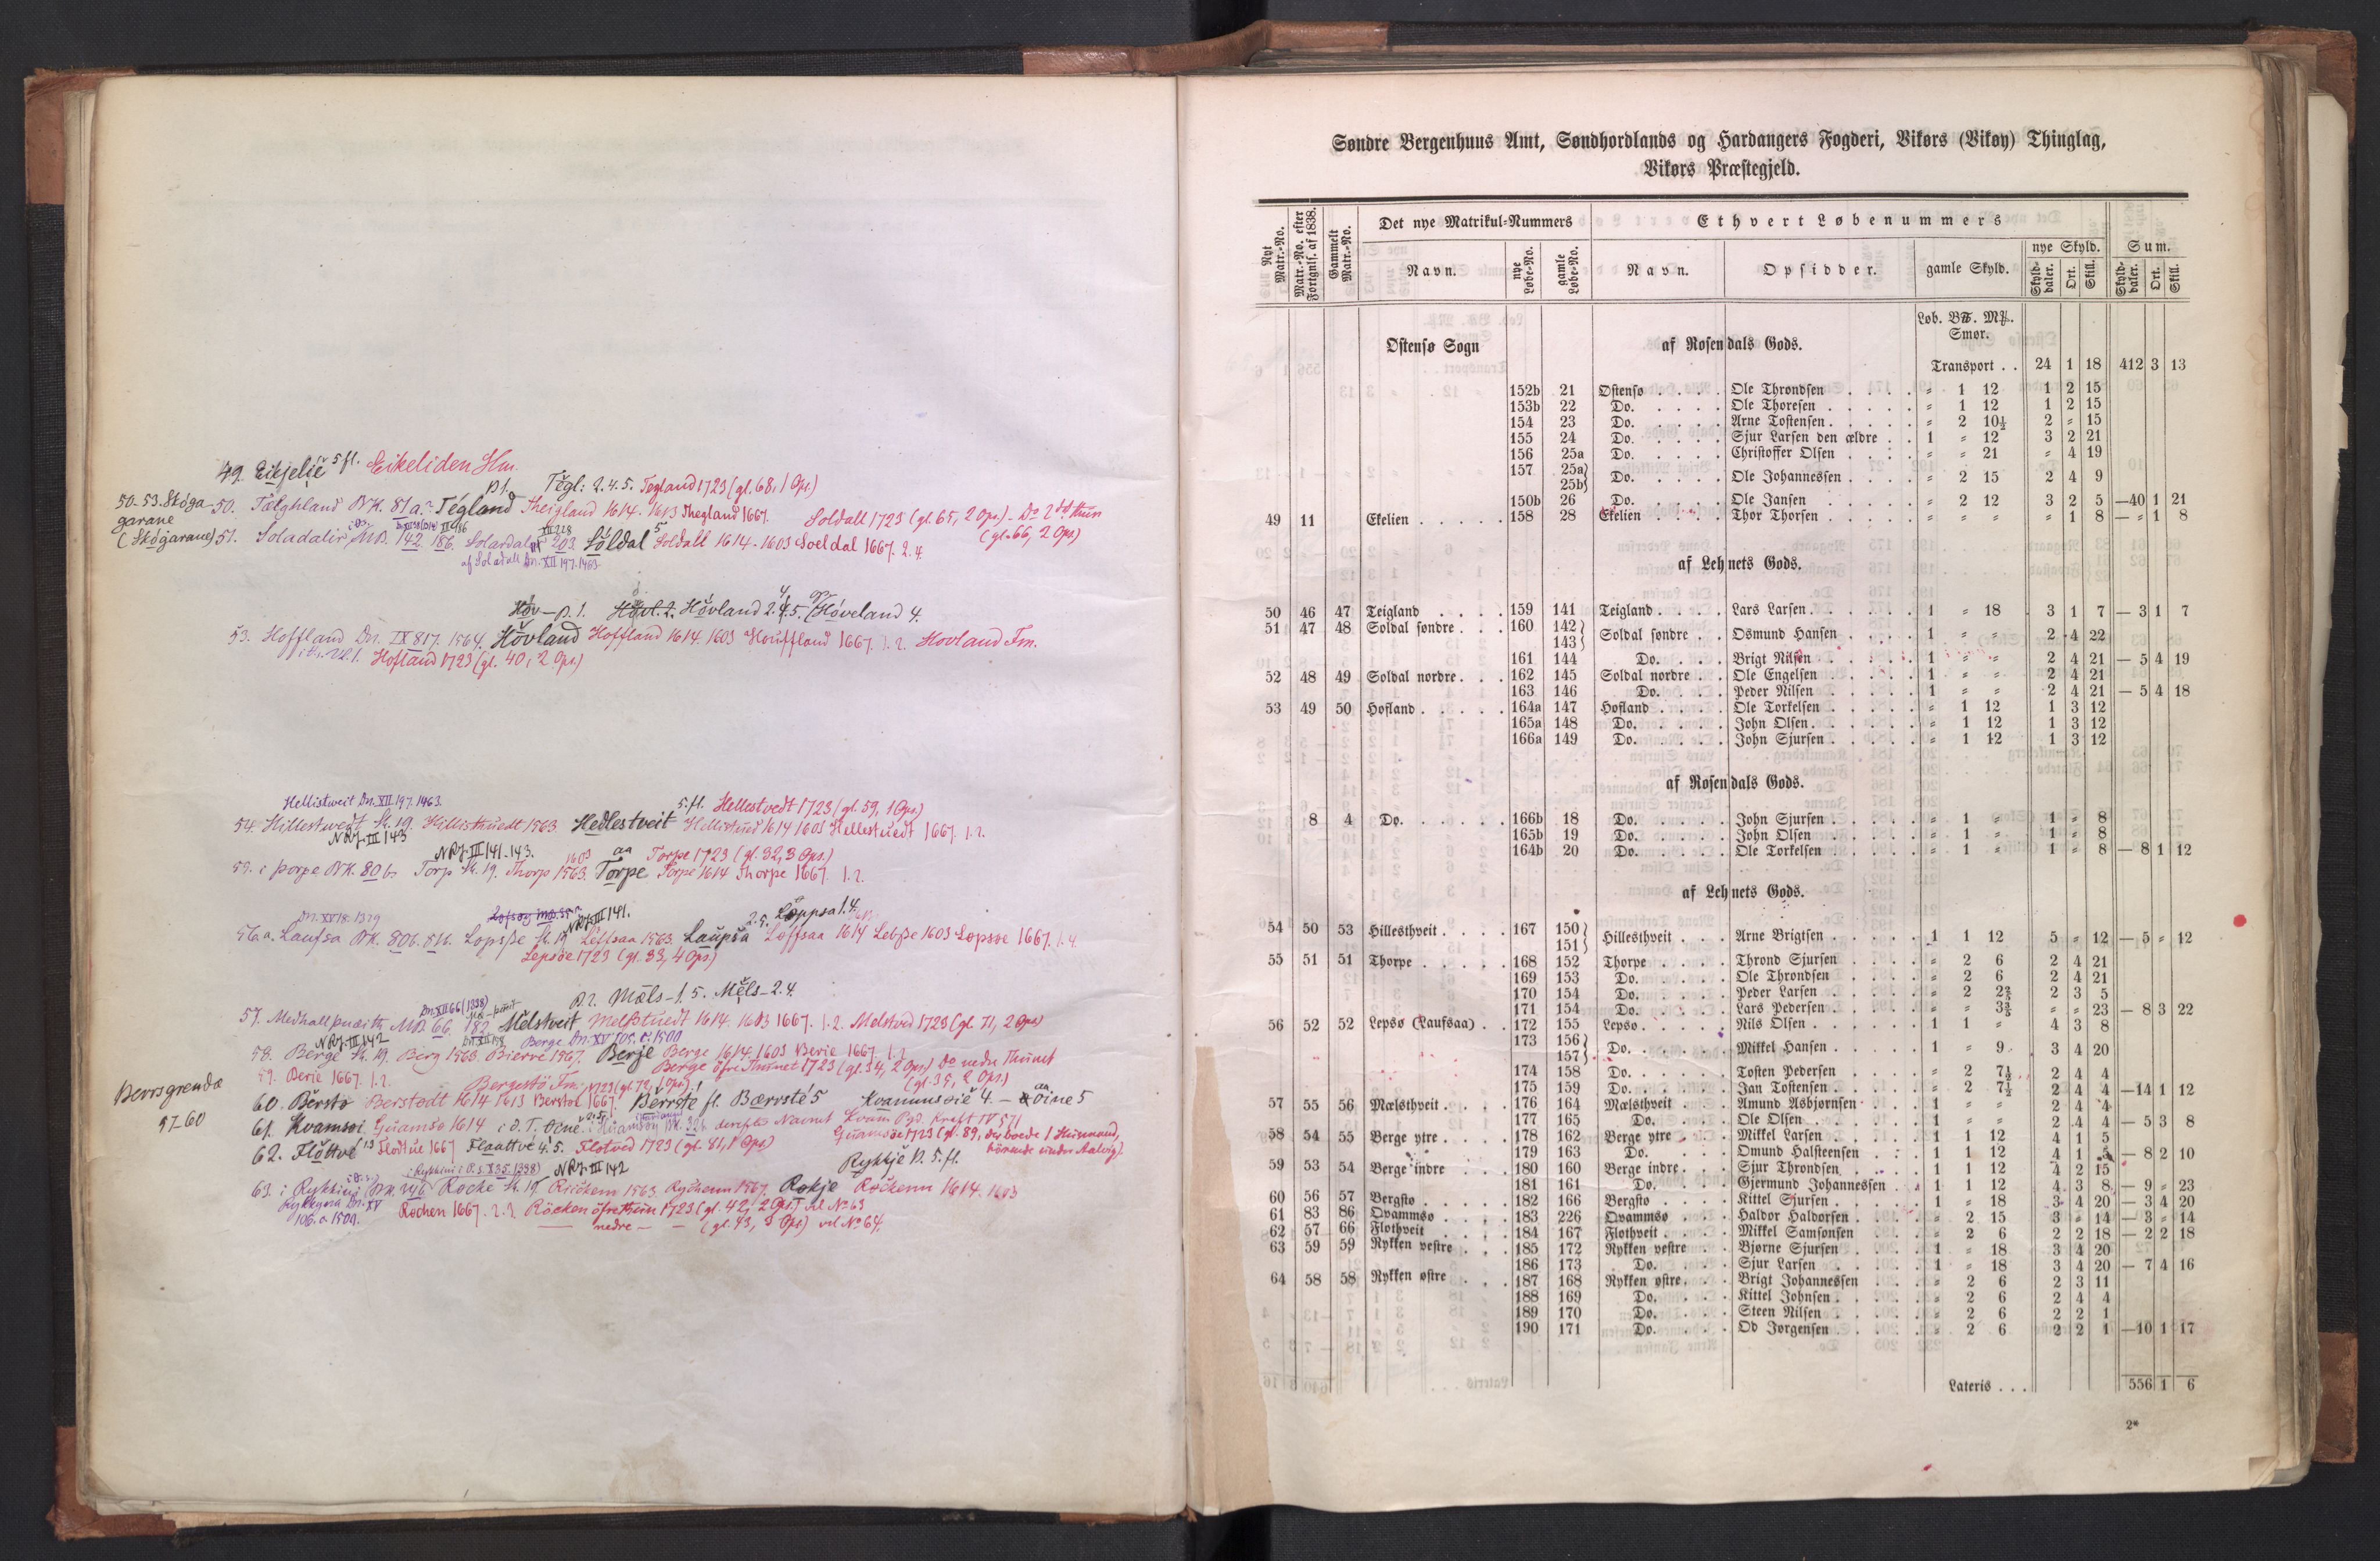 49. Eikjelie 5 fl. Eikeliden Hm.
p 1. Tégl: 2.4.5. Tegland 1723 (gl. 68, 1 Ops.)
50-53. Skóga
garane
(Skógarane)
50. BK. 81a. Tégland Theigland 1614. 1603 Thegland 1667.
Soldall 1723 (gl. 65, 2 Ops.) - Do
(gl. 66, 2 Ops.)
51. Soladalir 142. 186. 203 Sóldal 5 Soldall 1614. 1603 Soeldal 1667. 2.4
af Soladall Dn. XII 197. 1463
Hövland 2.4.5. Höveland 4.
53. Hoffland Dn. IX 817. 1564. Hövland Hoffland 1614. 1603 Houffland 1667. 1. 2. Hovland Fm.
Hofland 1723 (gl. 40, 2 Ops.)
Hellistweit Dn. XII 197. 1463.
5. fl. Hellestvedt 1723 (gl. 59, 1 Ops.)
54. Hillestwedt St. 19. Hillisthuedt 1563 Hedlestveit 1614 1603 Hellestuedt 1667. 1. 2.
NRJ. III 143
NRJ. III 141-143.
aa Torpe 1723 (gl. 32, 3 Ops.)
55. i þorpe BK. 80b Torp St. 19. Thorp 1563. Torpe Torpe 1614 Thorpe 1667. 1. 2.
Dn. XV 18. 1329
NRJ III 141.
2.5. Löppsa 1.4.
56. a. Laufsa BK. 80b. 81b. Lopsße St. 19 Löffsaa 1563. Laupsa Loffsaa 1614 Lebße 1603 Lopsöe 1667. 1. 4
Lepsöe 1723 (gl. 33, 4 Ops.)
p. 2. Mæls - 1. 5. Mels - 2. 4.
Dn. XII 66 (1338)
57. 66. 182. Mélstveit Melßtuedt 1614. 1603 1667. 1. 2. Melstved 1723 (gl. 71, 2 Ops.)
NRJ. III 142
Berge Dn. XV 105. c. 1500
58. Berge St. 19. Berg 1563. Bierre 1567. Berje Berge 1614. 1603 Berie 1667. 1. 2
Berge öfre Thunet 1723 (gl. 34, 2 Ops.) Do nedre Thunet
(gl. 35, 2 Ops.)
59. Berie 1667. 1. 2.
Berrsgrendæ
57-60
60. Bersto Berstödt 1614 1613 Berstöe 1667. Berrste fl. Bærrsté 5 Kvammsöie 4. - öine 5
61. Kvamsöi Guamsö 1614 i O. T. derefter Navnet Kvam Pgd. Kraft IV 571
Guamsöe 1723 (gl. 89,
62. Flóttve 13 Flodtue 1667 Flauttve 4.5. Flotved 1723 (gl. 81, 1 Ops)
Rykkje p. 5. fl.
NRJ. III 142
63. i Rykkini BK. Roche St. 19 Ricchem 1563 Rychenn 1567. Rokje Rochenn 1614. 1603
Rykkynæ Dn. XV
106. c. 1500.
Röchen 1667. 2. 2. Röcken öfrethun 1723 (gl. 42, 2 Ops.) vel No 63
nedre — — (gl. 43, 3 Ops.) vel No 64.
Søndre Bergenhuus Amt, Søndhordlands og Hardangers Fogderi, Vikørs (Vikøy) Thinglag,
Vikørs Præstegjeld.
Nyt Matr.-No.
Matr.-No. efter Fortgnls. af 1838.
Gammelt Matr.-No.
Det nye Matrikul-Nummers
Ethvert Løbenummers
Navn. nye Løbe-No. gamle Løbe-No. Navn. Opsidder. gamle Skyld. nye Skyld. Sum.
Skylddaler. Ort. Skill. Skylddaler. Ort. Skill.
Løb. B℔. M℔.
Smør.
Østensø Sogn af Rosendals Gods.
Transport . . 24 1 18 412 3 13
152b 21 Østensø . . . . Ole Throndsen . . . . " 1 12 1 2 15
153b 22 Do. . . . . Ole Thoresen . . . . . " 1 12 1 2 15
154 23 Do. . . . . Arne Tostensen . . . . " 2 10½ 2 " 15
155 24 Do. . . . . Sjur Larsen den ældre . . 1 " 12 3 2 21
156 25a Do. . . . . Christoffer Olsen . . . . " " 21 " 4 19
157 25a} 25b} Do. . . . . Ole Johannessen . . . . " 2 15 2 4 9
150b 26 Do. . . . . Ole Jansen . . . . . " 2 12 3 2 5 —40 1 21
49 11 Ekelien . . . . . 158 28 Ekelien . . . . Thor Thorsen . . . . . " " " " 1 8 — " 1 8
af Lehnets Gods.
50 46 47 Teigland . . . . 159 141 Teigland . . . . Lars Larsen . . . . . 1 " 18 3 1 7 — 3 1 7
51 47 48 Soldal søndre . . . 160 142} 143} Soldal søndre . . Osmund Hansen . . . . 1 " " 2 4 22
161 144 Do. . . . Brigt Nilsen . . . . . 1 " " 2 4 21 — 5 4 19
52 48 49 Soldal nordre . . . 162 145 Soldal nordre . . Ole Engelsen . . . . . 1 " " 2 4 21
163 146 Do. . . . Peder Nilsen . . . . . 1 " " 2 4 21 — 5 4 18
53 49 50 Hofland . . . . . 164a 147 Hofland . . . . Ole Torkelsen . . . . . " 1 12 1 3 12
165a 148 Do. . . . . John Olsen . . . . . " 1 12 1 3 12
166a 149 Do. . . . . John Sjursen . . . . . " 1 12 1 3 12
af Rosendals Gods.
8 4 Do. . . . . . 166b 18 Do. . . . . John Sjursen . . . . . " 1 " 1 " 8
165b 19 Do. . . . . John Olsen . . . . . " 1 " 1 " 8
164b 20 Do. . . . . Ole Torkelsen . . . . . " 1 " 1 " 8 — 8 1 12
af Lehnets Gods.
54 50 53 Hillesthveit . . . . 167 150} 151} Hillesthveit . . . Arne Brigtsen . . . . . 1 1 12 5 " 12 — 5 " 12
55 51 51 Thorpe . . . . . 168 152 Thorpe . . . . Thrond Sjursen . . . . " 2 6 2 4 21
169 153 Do. . . . . Ole Throndsen . . . . " 2 6 2 4 21
170 154 Do. . . . . Peder Larsen . . . . . " 2 2⅖ 2 3 5
171 154 Do. . . . . Lars Pedersen . . . . . " " 3⅗ " " 23 — 8 3 22
56 52 52 Lepsø (Laufsaa) . . 172 155 Lepsø . . . . . Nils Olsen . . . . . 1 1 " 4 3 8
173 156} 157} Do. . . . . Mikkel Hansen . . . . 1 " 9 3 4 20
174 158 Do. . . . . Tosten Pedersen . . . . " 2 7½ 2 4 4
175 159 Do. . . . . Jan Tostensen . . . . . " 2 7½ 2 4 4 —14 1 12
57 55 56 Mælsthveit . . . . 176 164 Mælsthveit . . . Amund Asbjørnsen . . . 1 " " 2 4 4
177 165 Do. . . . . Ole Olsen . . . . . . 1 " " 2 4 4 — 5 3 8
58 54 55 Berge ytre . . . . 178 162 Berge ytre . . . Mikkel Larsen . . . . . 1 1 12 4 1 5
179 163 Do. . . . Omund Halsteensen . . . 1 1 12 4 1 5 — 8 2 10
59 53 54 Berge indre . . . 180 160 Berge indre . . . Sjur Throndsen . . . . 1 1 12 4 2 15
181 161 Do. . . . Gjermund Johannessen . . 1 1 12 4 3 8 — 9 " 23
60 56 57 Bergstø . . . . . 182 166 Bergstø . . . . Kittel Sjursen . . . . . 1 " 18 3 4 20 — 3 4 20
61 83 86 Qvammsø . . . . 183 226 Qvammsø . . . Haldor Haldorsen . . . . " 2 15 3 " 14 — 3 " 14
62 57 66 Flothveit . . . . 184 167 Flothveit . . . . Mikkel Samsonsen . . . " 2 6 2 2 18 — 2 2 18
63 59 59 Rykken vestre . . . 185 172 Rykken vestre . . Bjørne Sjursen . . . . 1 " 18 3 4 20
186 173 Do. . . . Sjur Larsen . . . . . 1 " 18 3 4 20 — 7 4 16
64 58 58 Rykken østre . . . 187 168 Rykken østre . . . Brigt Johannessen . . . " 2 6 2 3 11
188 169 Do. . . . Kittel Johnsen . . . . . " 2 6 2 4 4
189 170 Do. . . . Steen Nilsen . . . . . " 2 6 2 2 1
190 171 Do. . . . Od Jørgensen . . . . . " 2 6 2 2 1 —10 1 17
Lateris . . . 556 1 6
2*